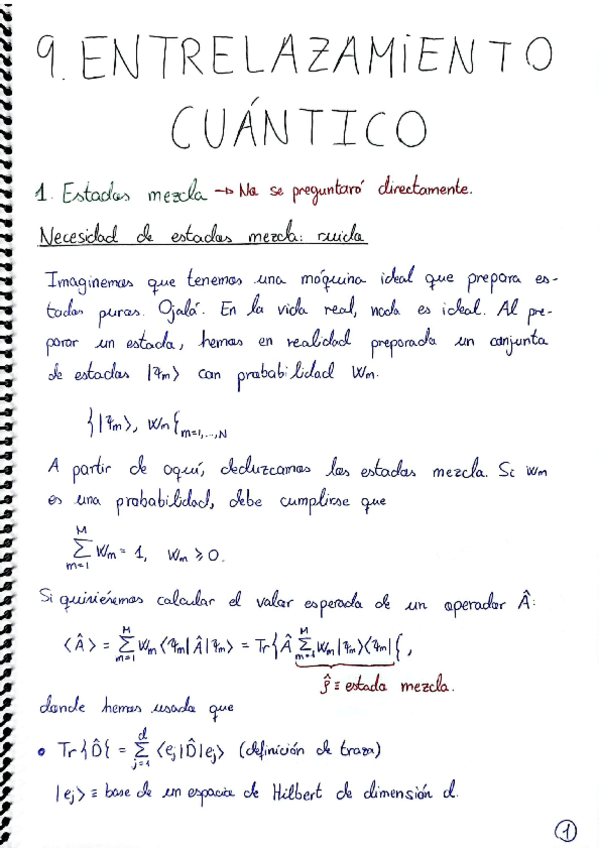 9. ENTRELAZAMIENTO
CUÁNTICO
1. Estados mezcla → No se preguntará directamente.
Necesidad de estados mezcla: ruido
Imaginemos que tenemos una máquina ideal que prepara es-
tados puros. Ojalá. En la vida real, nada es ideal. Al pre-
parar un estado, hemos en realidad preparado un conjunto
de estados |Ψm⟩ con probabilidad Wm.
{|Ψm⟩, Wm}m=1,...,N
A partir de aquí, deduzcamos los estados mezcla. Si Wm
es una probabilidad, debe cumplirse que
∑_{m=1}^{M} Wm = 1, Wm ≥ 0.
Si quisiéramos calcular el valor esperado de un operador Â:
⟨Â⟩ = ∑_{m=1}^{M} Wm⟨Ψm|Â|Ψm⟩ = Tr{Â ∑_{m=1}^{M} Wm|Ψm⟩⟨Ψm|},
ρ̂ ≡ estado mezcla.
donde hemos usado que
• Tr{D̂} = ∑_{j=1}^{d} ⟨ej|D̂|ej⟩ (definición de traza)
|ej⟩ ≡ base de un espacio de Hilbert de dimensión d.
1